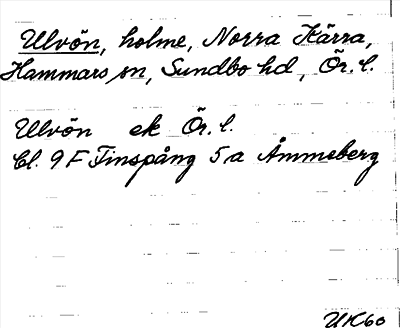 Ulvön, holme, Norra Kärra,
Hammars sn, Sundbo hd, Ör. l.
Ulvön ek Ör. l.
Bl. 9 F Finspång 5 a Åmmeberg
UK60